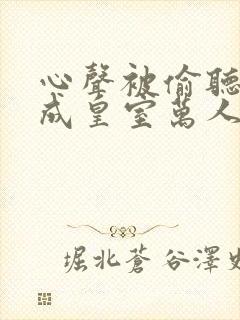 心聲被偷聽
成皇室萬人
堀北蒼谷澤